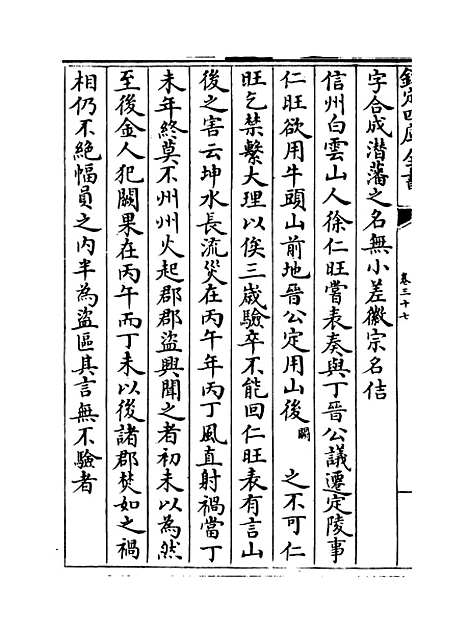 欽定四庫全書
卷三十七
字合成潛藩之名無小差徽宗名佶
信州白雲山人徐仁旺嘗表奏與丁晉公議遷定陵事
仁旺欲用牛頭山前地晉公定用山後闕之不可仁
旺乞禁繫大理以俟三嵗驗卒不能回仁旺表有言山
後之害云坤水長流災在丙午年丙丁風直射禍當丁
未年終莫不州州火起郡郡盜興聞之者初未以為然
至後金人犯闕果在丙午而丁未以後諸郡焚如之禍
相仍不絶幅員之内半為盜區其言無不驗者